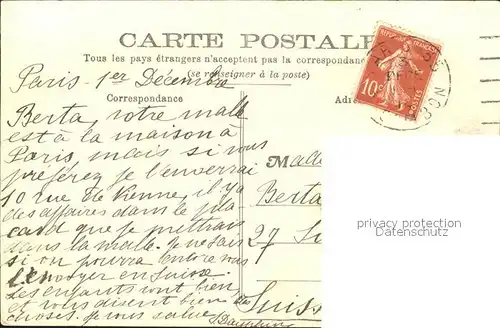 CARTE POSTALE
Tous les pays étrangers n'acceptent pas la correspondance
(se renseigner à la poste)
REPUBLIQUE FRANÇAISE
10c
POSTES
Paris 1er Décembre
Correspondance
Adre
Berta, votre malle
est à la maison à
Paris, mais si vous
préférez je l'enverrai
10 rue de Vienne, il y a
des affaires dans le pla
card que je mettrais
dans la malle. Je ne sais
si on pourra encore vous
l'envoyer en Suisse.
Les enfants vont bien
et vous disent bien des
choses. Je vous salue
Mad
Berta
27
Suiss
privacy protection
Datenschutz